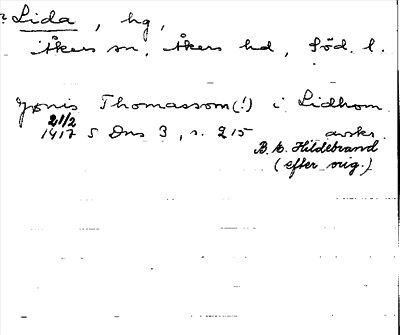 ? Lida, hg,
Åkers sn, Åkers hd, Söd. l.
Jrønis Thomassom (!) i Lidhom
21/2
1417 S Dns 3, s. 215 avskr.
B. E. Hildebrand
(efter orig.)